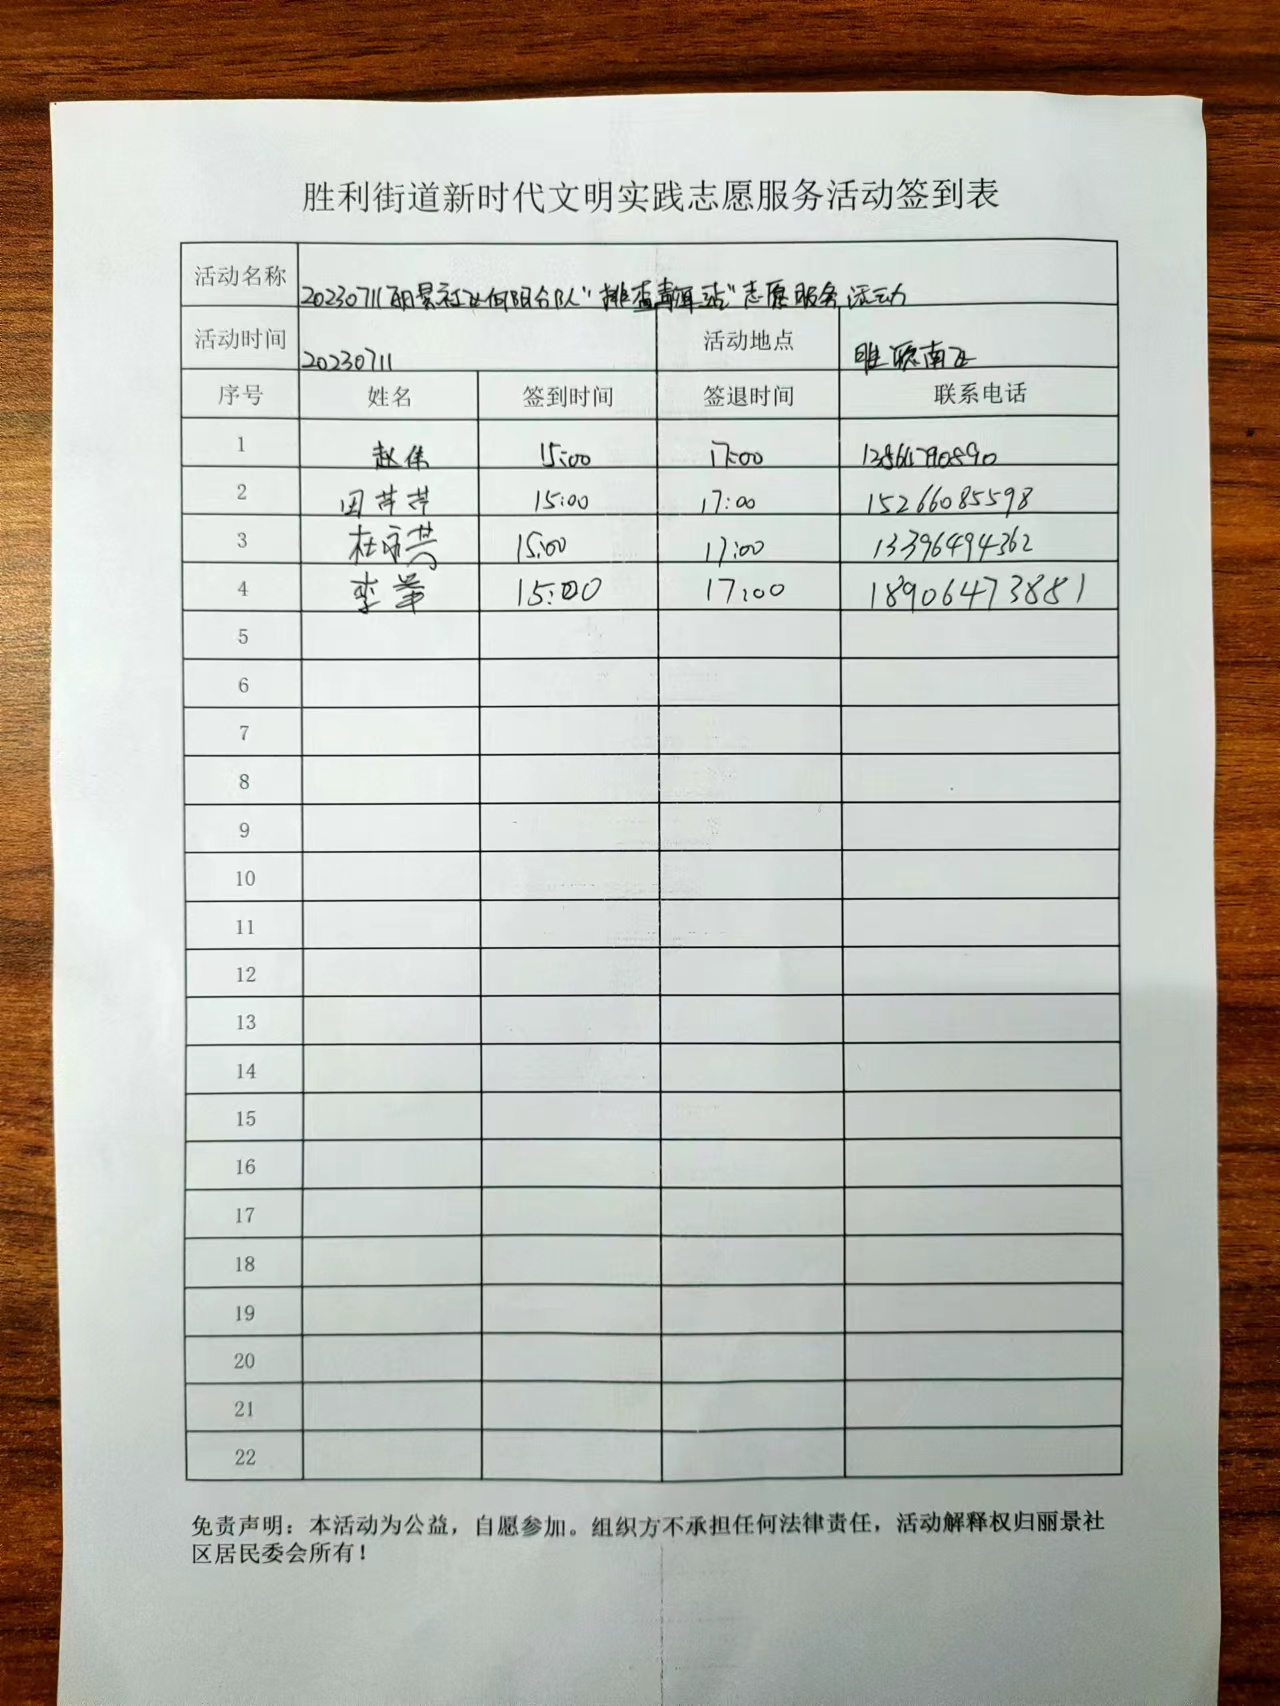 胜利街道新时代文明实践志愿服务活动签到表
活动名称 20230711丽景社区向阳分队“排查 ”志愿服务活动
活动时间 20230711 活动地点 南区
序号 姓名 签到时间 签退时间 联系电话
1 赵伟 15:00 17:00
2 田苹苹 15:00 17:00 15266085598
3 杜 15:00 17:00 13396494362
4 李华 15:00 17:00 18906473881
5
6
7
8
9
10
11
12
13
14
15
16
17
18
19
20
21
22
免责声明：本活动为公益，自愿参加。组织方不承担任何法律责任，活动解释权归丽景社
区居民委会所有！